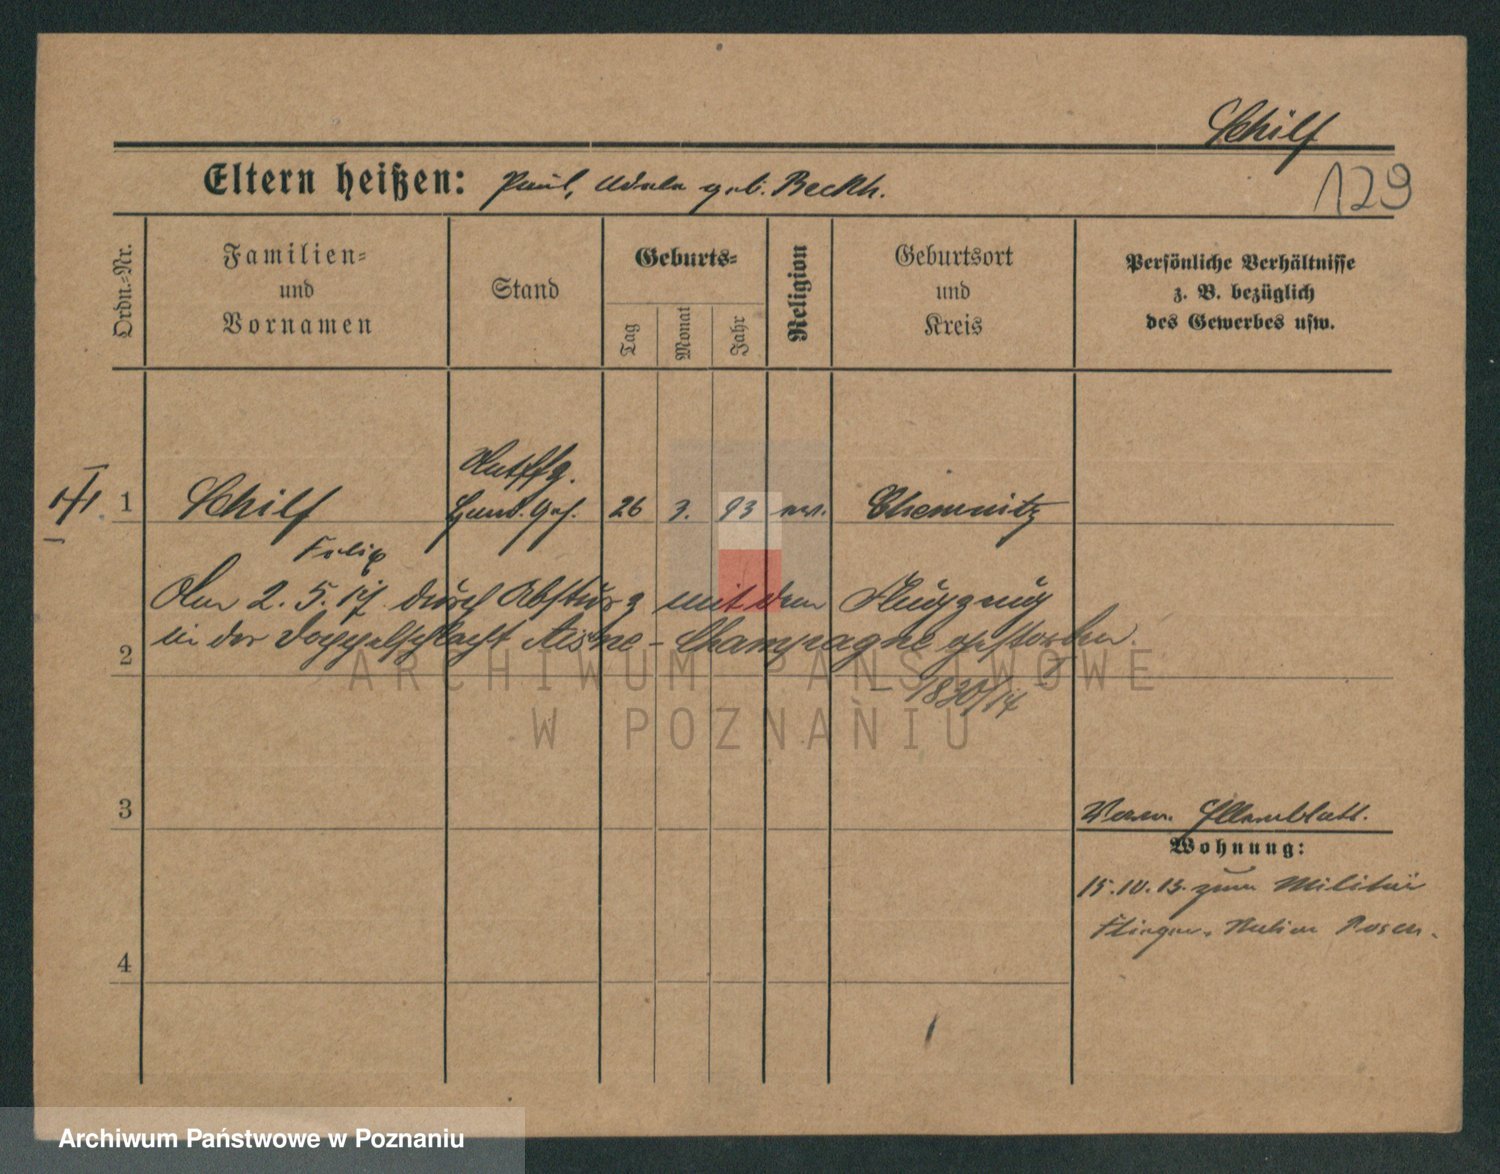 Schilf
129
Eltern heißen: Paul, Adele geb. Beckh.
Ordn.=Nr.
Familien=
und
Vornamen
Stand
Geburts=
Tag
Monat
Jahr
Religion
Geburtsort
und
Kreis
Persönliche Verhältnisse
z. B. bezüglich
des Gewerbes usw.
1
Schilf
Felix
Hand. Geh.
26
3.
93
ev.
Chemnitz
Am 2. 5. 17. durch Absturz mit dem Flugzeug
in der Doppelschlacht Aisne-Champagne gestorben.
2
1830/14
ARCHIWUM PAŃSTWOWE
W POZNANIU
3
Wohnung:
15.10.13. zum Militär
Posen.
4
Archiwum Państwowe w Poznaniu